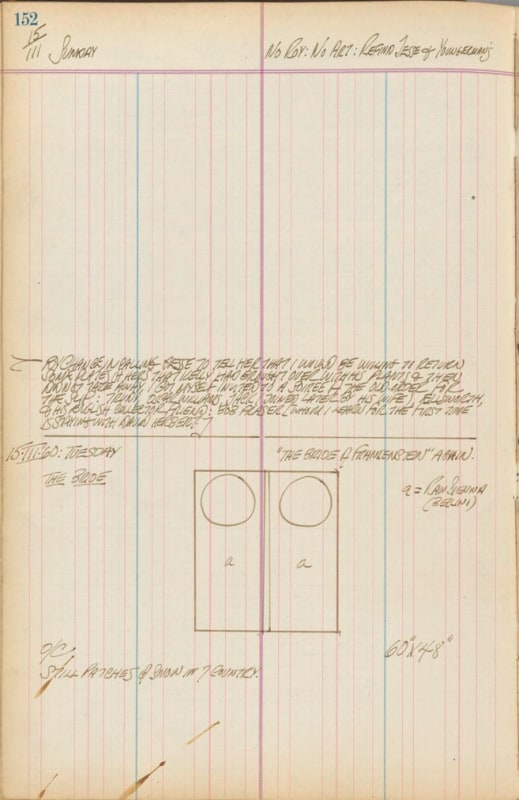 152
15/III SUNDAY
NO ROY: NO ART: REFIND JESSE & YOUNGERMAN'S
BY CHANGE IN CALLING BESSE TO TELL HER THAT I WOULD BE WILLING TO RETURN
SOME CRATES OF HERS THAT I HAD BROUGHT OVER WITH HIS PLANTS & THEN
DID NOT TAKE AWAY I GOT MYSELF INVITED TO A SOIREE OF THE OLD ORDER FOR
THE SLIP: OSCAR WILLIAMS, JACK (JOINED LATER BY HIS WIFE), ELLSWORTH,
& HIS ENGLISH COLLECTOR FRIEND: BOB FRASER (WHOM I LEARN FOR THE FIRST TIME
IS STAYING WITH HERBERT)
15·III·60: TUESDAY
"THE BRIDE OF FRANKENSTEIN" AGAIN.
THE BRIDE
a = RAW SIENNA
(BELLINI)
a a
O/C
60" X 48"
STILL PATCHES OF SNOW IN COUNTRY.